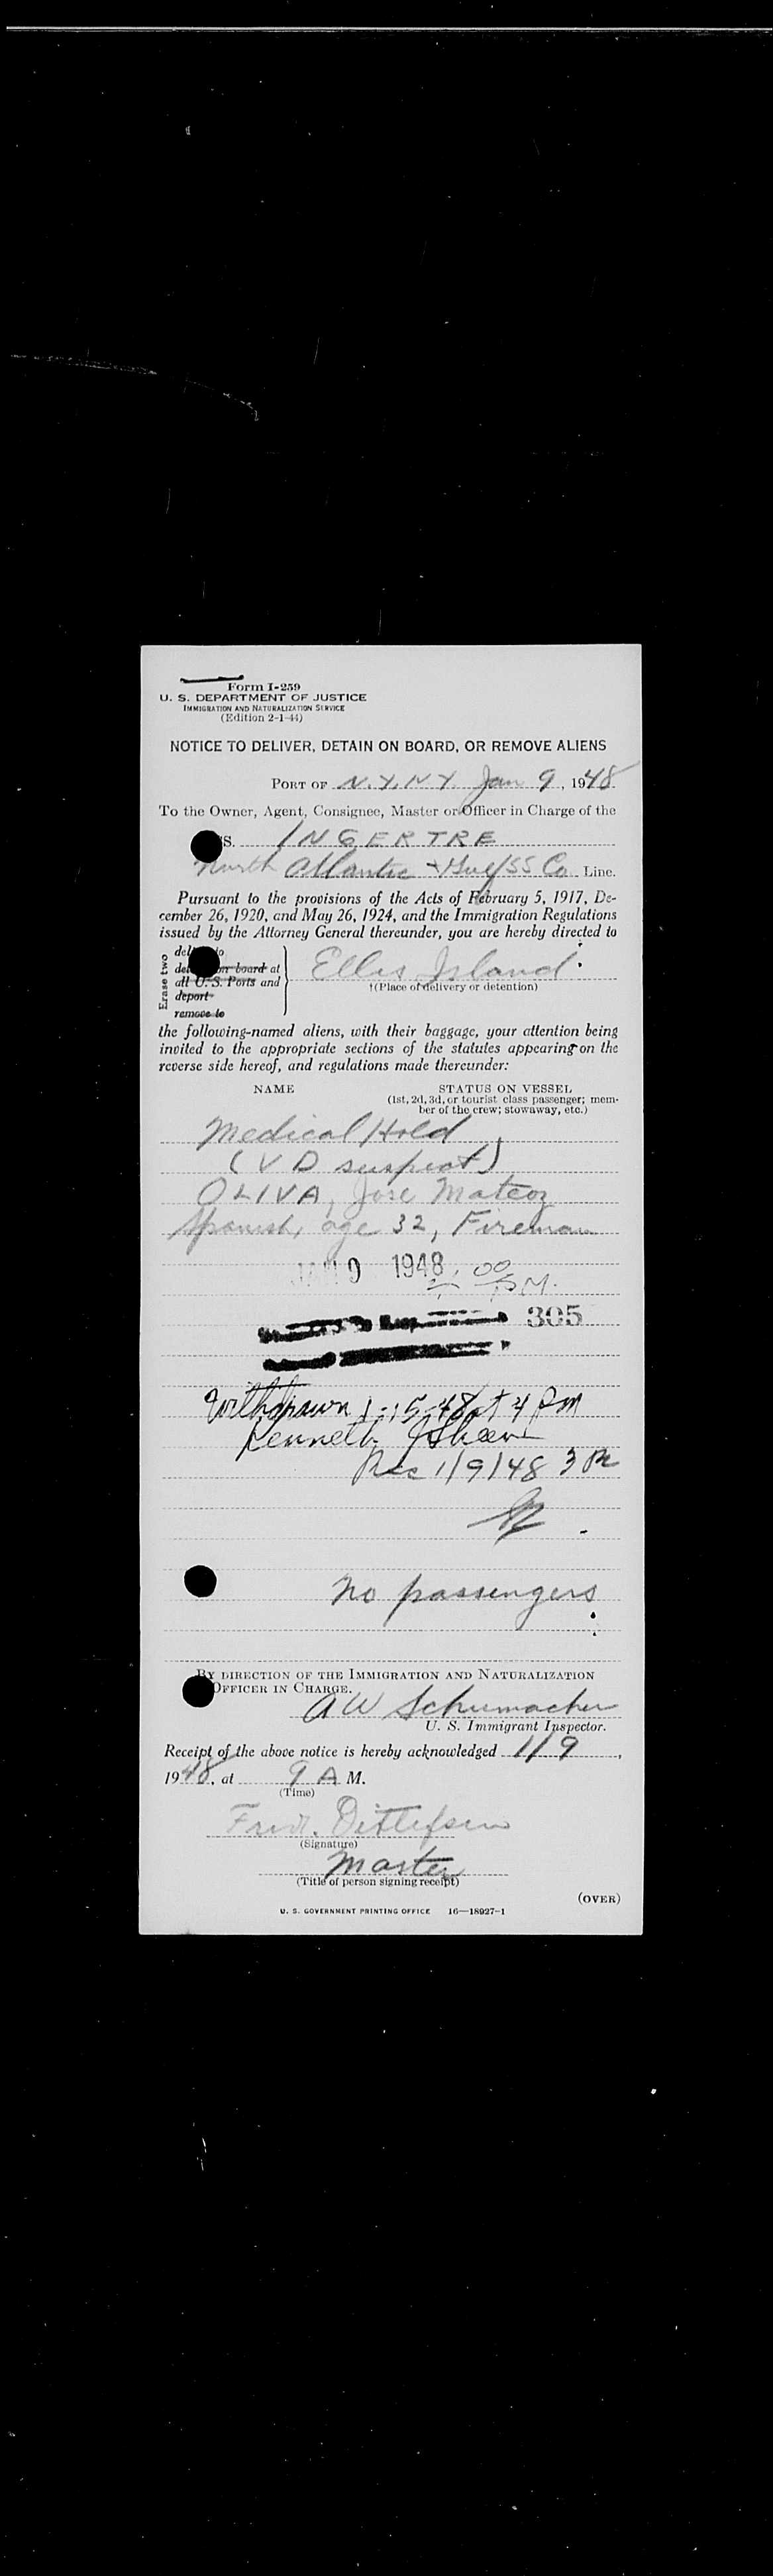 Form I-259
U. S. DEPARTMENT OF JUSTICE
IMMIGRATION AND NATURALIZATION SERVICE
(Edition 2-1-44)
NOTICE TO DELIVER, DETAIN ON BOARD, OR REMOVE ALIENS
PORT OF N.Y. N Y Jan 9, 1948
To the Owner, Agent, Consignee, Master or Officer in Charge of the
S. INGERTRE
North Atlantic & Gulf SS Co Line.
Pursuant to the provisions of the Acts of February 5, 1917, De-
cember 26, 1920, and May 26, 1924, and the Immigration Regulations
issued by the Attorney General thereunder, you are hereby directed to
Erase two
board at
all U. S. Ports and
deport
remove to
Ellis Island
†(Place of delivery or detention)
the following-named aliens, with their baggage, your attention being
invited to the appropriate sections of the statutes appearing on the
reverse side hereof, and regulations made thereunder:
NAME STATUS ON VESSEL
(1st, 2d, 3d, or tourist class passenger; mem-
ber of the crew; stowaway, etc.)
Medical Hold
(V D suspect)
OLIVA, Jose Mateoz
Spanish, age 32, Fireman
JAN 9 1948
305
Withdrawn 1-15-48 at 4 PM
Kenneth
Rec 1/9/48 3
No passengers
BY DIRECTION OF THE IMMIGRATION AND NATURALIZATION
OFFICER IN CHARGE.
A W Schumacher
U. S. Immigrant Inspector.
Receipt of the above notice is hereby acknowledged 1/9,
1948, at 9 A M.
(Time)
Ditlefsen
(Signature)
Master
(Title of person signing receipt)
(OVER)
U. S. GOVERNMENT PRINTING OFFICE 16—18927-1